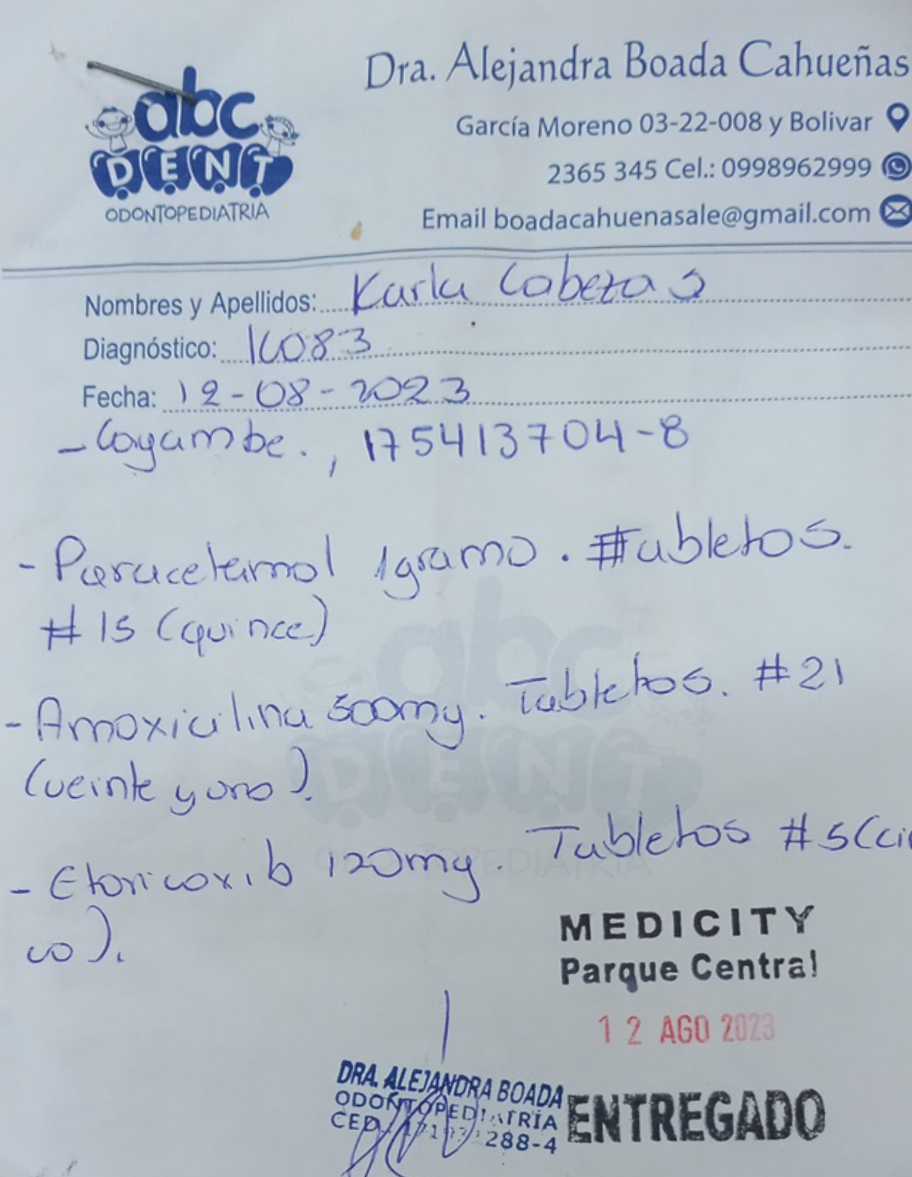 abc
DENT
ODONTOPEDIATRIA
Dra. Alejandra Boada Cahueñas
García Moreno 03-22-008 y Bolivar
2365 345 Cel.: 0998962999
Email boadacahuenasale@gmail.com
Nombres y Apellidos: Karla Cabezas
Diagnóstico: K083
Fecha: 12-08-2023
- Cayambe., 175413704-8
- Paracetamol 1gramo. Tabletas.
#15 (quince)
- Amoxicilina 500mg. Tabletas. #21
(veinte y uno).
- Etoricoxib 120mg. Tabletas #5(cin
co).
MEDICITY
Parque Central
12 AGO 2023
DRA. ALEJANDRA BOADA
ODONTOPEDIATRIA
CED. 288-4
ENTREGADO